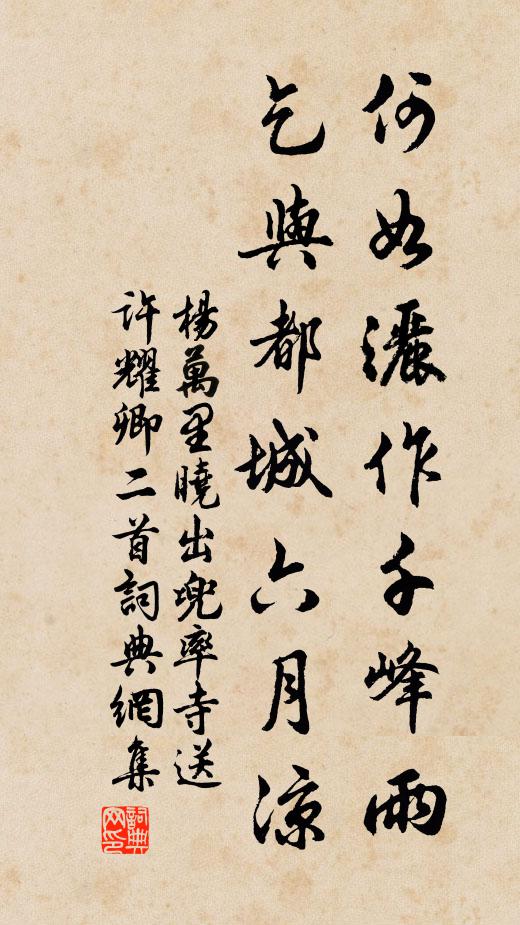 何如灑作千峰雨
乞與都城六月涼
楊萬里曉出兜率寺送
許耀卿二首詞典網集
詞典
网印